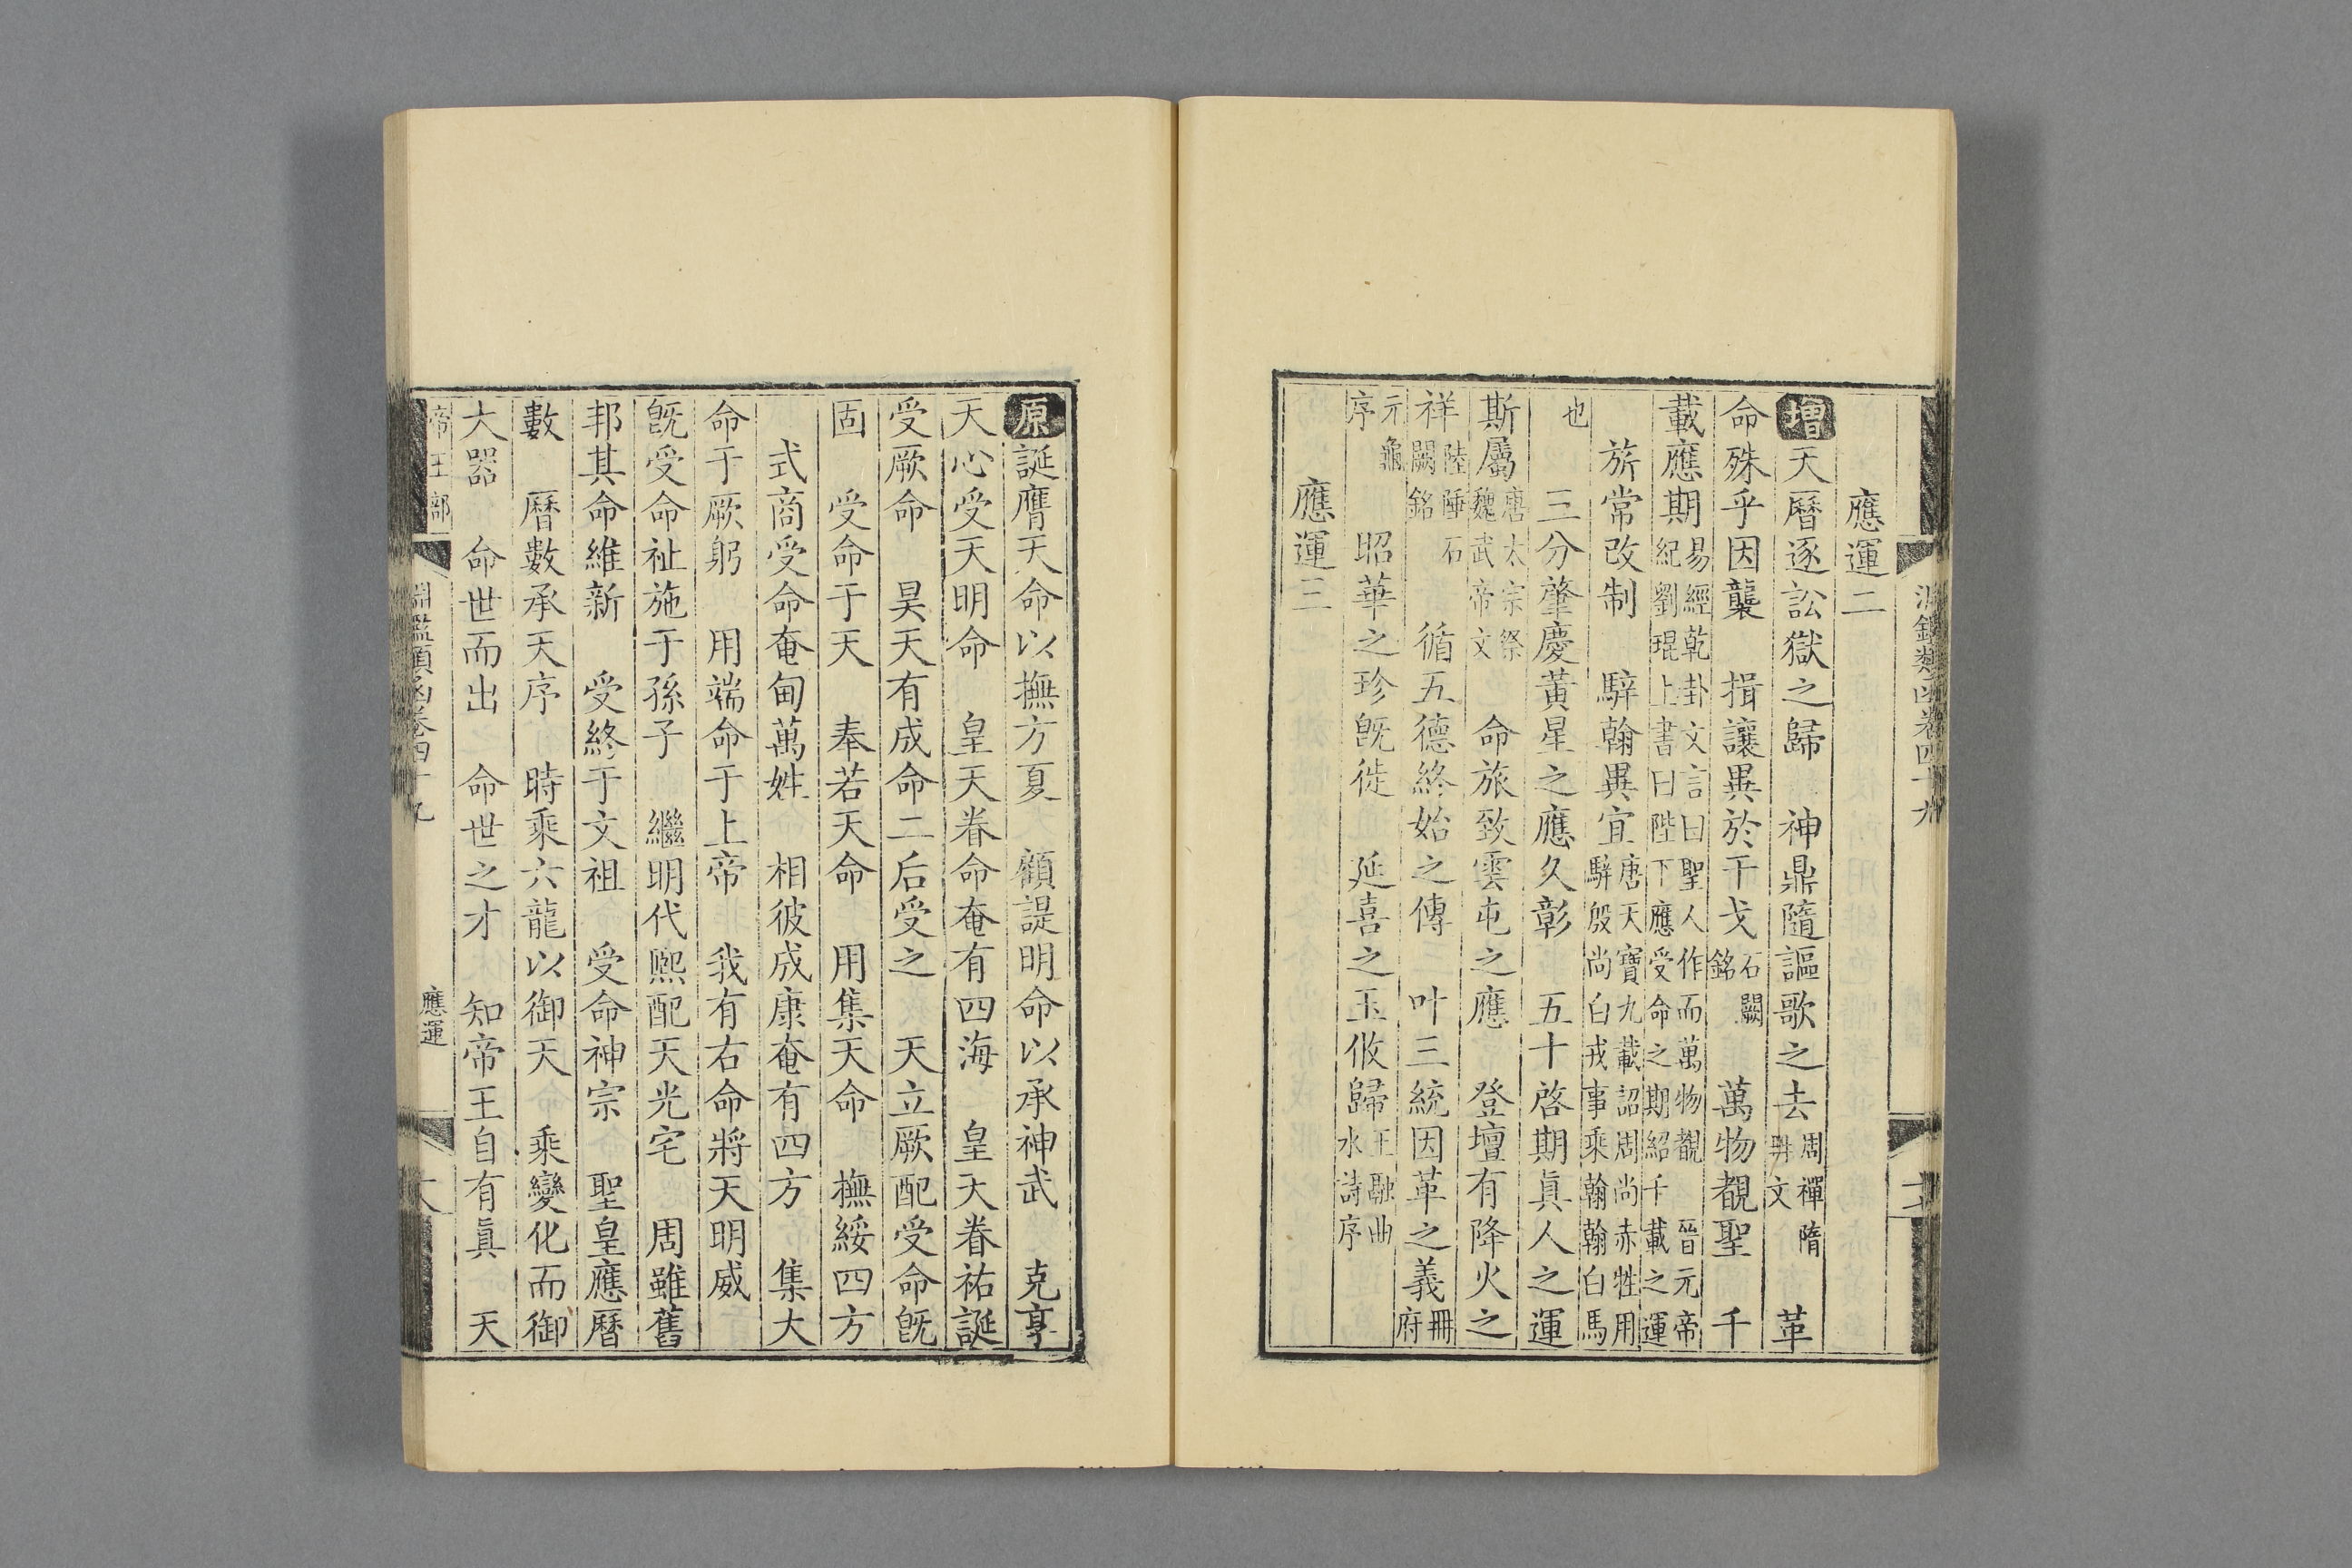 淵鑑類函卷四十九
應運二
增天曆逐訟獄之歸 神鼎隨謳歌之去周禪隋冊文 革
命殊乎因襲 揖讓異於干戈石闕銘 萬物覩聖 千
載應期易經乾卦文言曰聖人作而萬物覩 晉元帝紀劉琨上書曰陛下應受命之期紹千載之運
旂常改制 騂翰異宜唐天寶九載詔周尚赤牲用騂殷尚白戎事乘翰翰白馬
也 三分肇慶黃星之應久彰 五十啓期眞人之運
斯屬唐太宗祭魏武帝文 命旅致雲屯之應 登壇有降火之
祥陸倕石闕銘 循五德終始之傳 叶三統因革之義冊府
元龜序 昭華之珍旣徙 延喜之玉攸歸王融曲水詩序
應運三
原誕膺天命以撫方夏 顧諟明命以承神武 克享
天心受天明命 皇天眷命奄有四海 皇天眷祐誕
受厥命 昊天有成命二后受之 天立厥配受命旣
固 受命于天 奉若天命 用集天命 撫綏四方
式商受命奄甸萬姓 相彼成康奄有四方 集大
命于厥躬 用端命于上帝 我有右命將天明威
旣受命祉施于孫子 繼明代熙配天光宅 周雖舊
邦其命維新 受終于文祖 受命神宗 聖皇應曆
數 曆數承天序 時乘六龍以御天 乘變化而御
大器 命世而出 命世之才 知帝王自有眞 天
帝王部 淵鑑類函卷四十九 應運